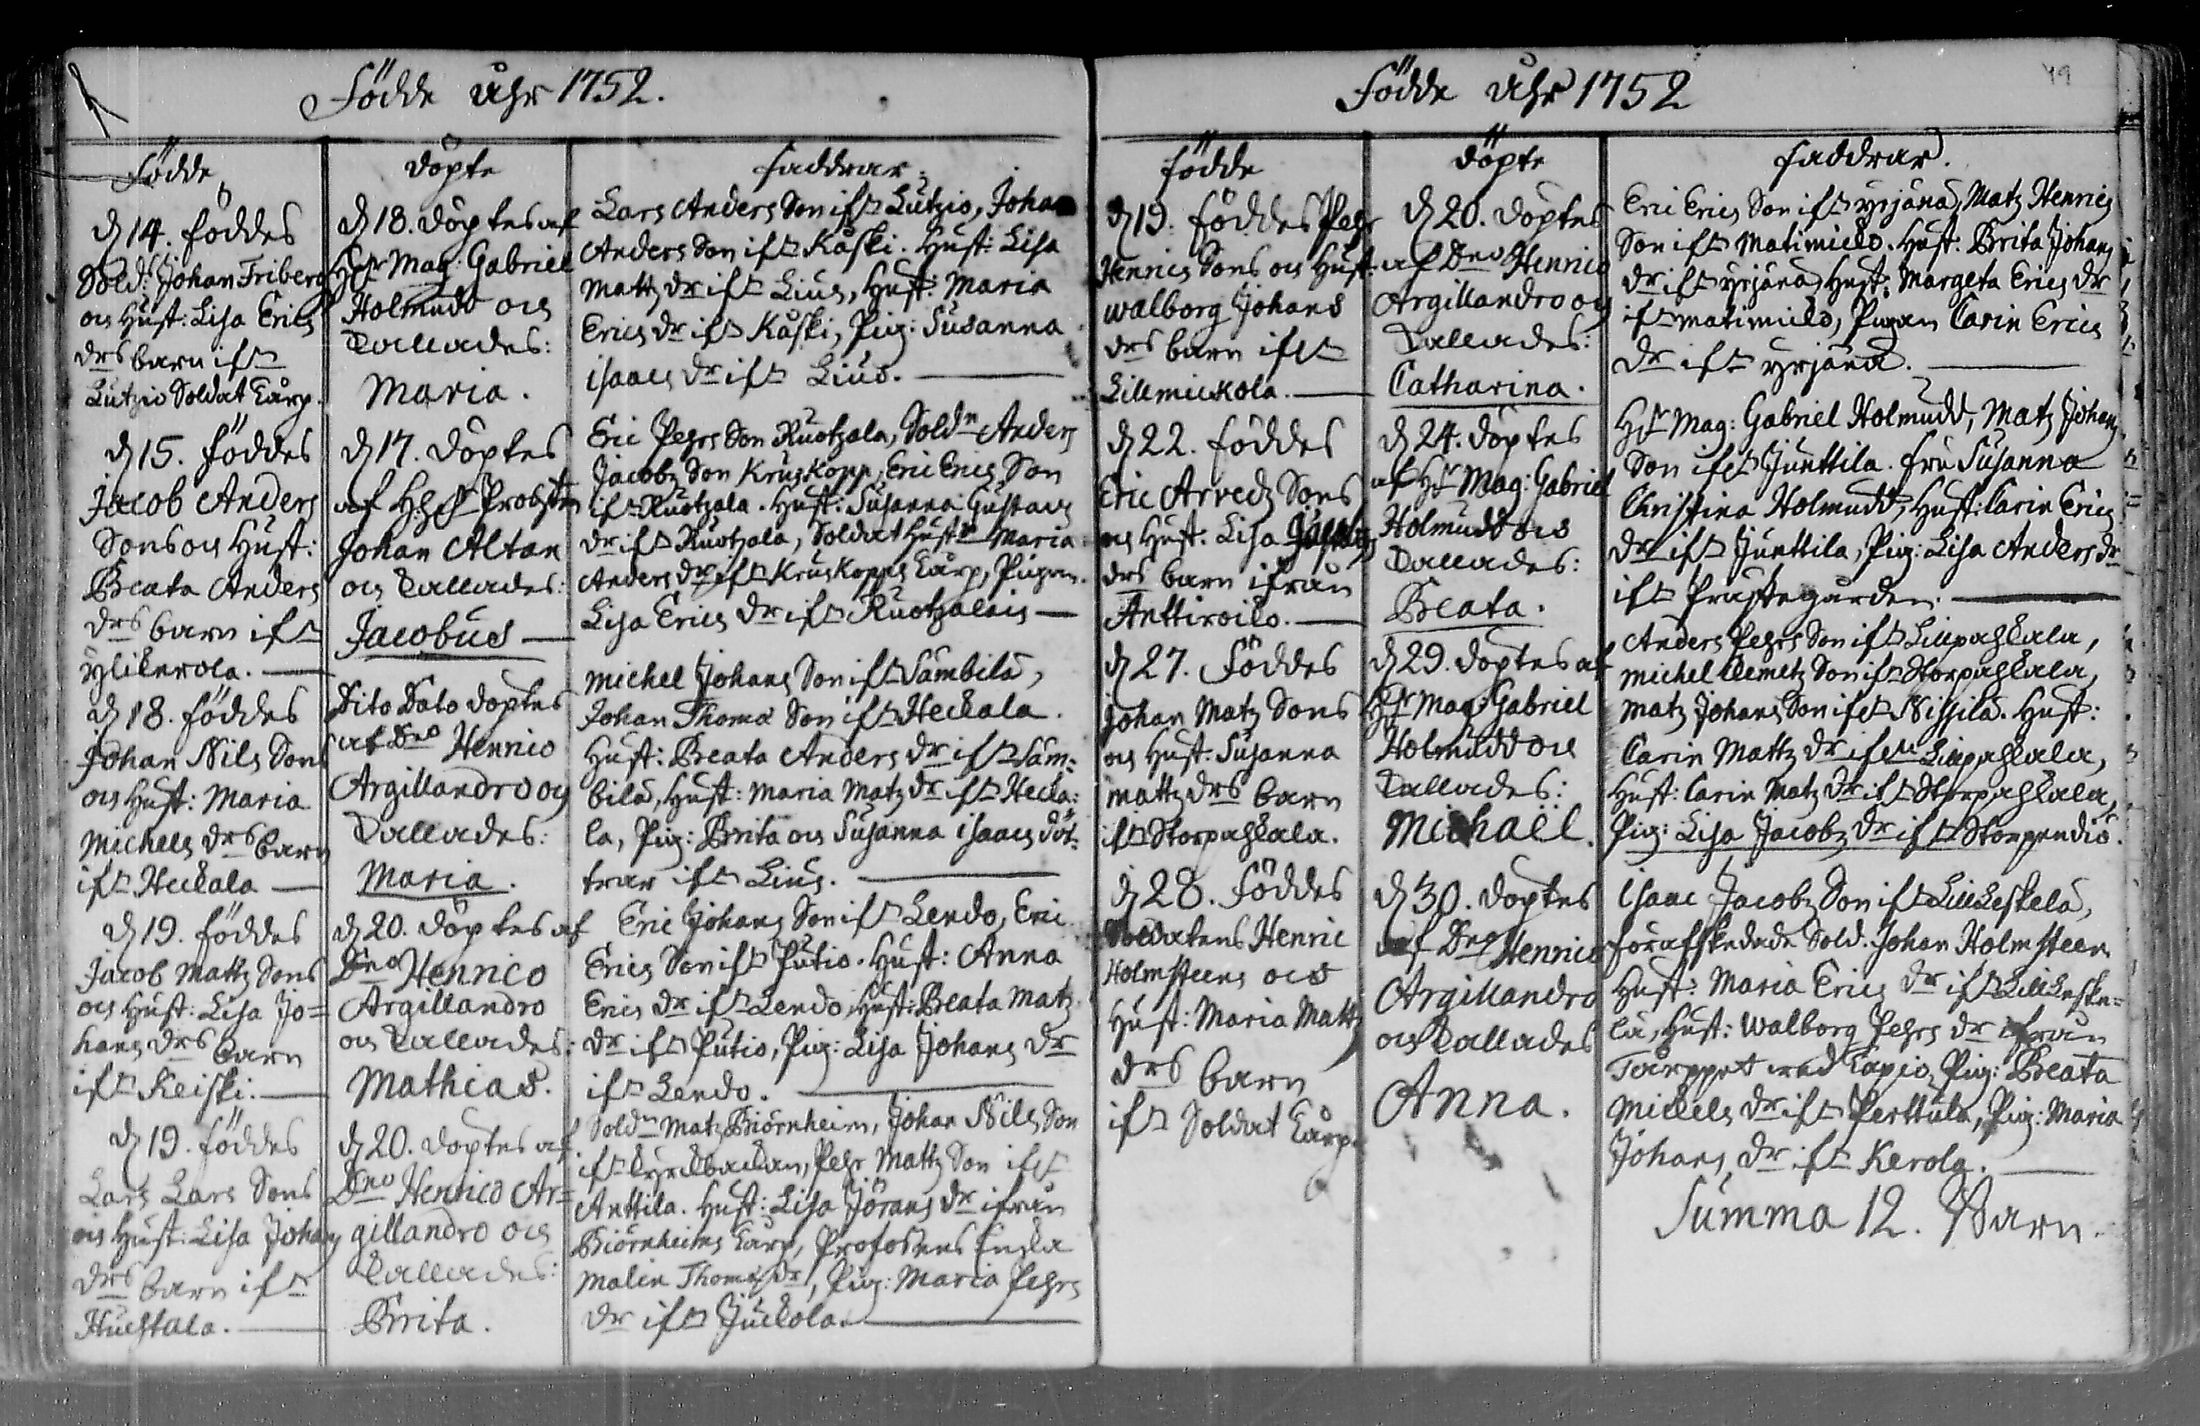 Födde Åhr 1752.
Födde
Döpte
faddrar
d 14. föddes
Sold: Johan Friberg
och Hust: Lisa Erichs
drs barn ifr
Lutzio Soldat Tårp.
d 18. döptes af
Hr Mag: Gabriel
Holmudd och
Kallades:
Maria.
Lars Anders Son ifr Lutzio, Johan
Anders Son ifr Kåski. Hust: Lisa
Mattz dr ifr Lius, Hust: Maria
Erics dr ifr Kåski, Pig: Susanna
isaacs dr ifr Lius.
d 15. föddes
Jacob Anders
Sons och Hust:
Beata Anders
drs barn ifr
ylikerola.
d 17. döptes
af Probsten
Johan Altan
och Kallades:
Jacobus
Eric Pehrs Son Ruotzala, Soldn Anders
Jacobz Son Kruskopp, Eric Erics Son
ifr Ruotzala. Hust: Susanna Gustavs
dr ifr Ruotzala, Soldat Hustr Maria
Anders dr ifr Kruskopps Tårp, Pigan
Lisa Erics dr ifr Ruotzalais
d 18. föddes
Johan Nils Sons
och Hust: Maria
Michels drs barn
ifr Heckala
Dito Dato döptes
af Dno Henrico
Argillandro och
Kallades:
Maria.
Michel Johans Son ifr Sambila,
Johan Thomæ Son ifr Heckala.
Hust: Beata Anders dr ifr Sam:
bila, Hust: Maria Matz dr ifr Hecka:
la, Pig: Brita och Susanna isaacs döt:
trar ifr Lius.
d 19. föddes
Jacob Mattz Sons
och Hust: Lisa Jo=
hans drs barn
ifr Keiski.
d 20. döptes af
Dno Henrico
Argillandro
och Kallades:
Mathias.
Eric Johans Son ifr Lendo, Eric
Erics Son ifr Putio. Hust: Anna
Erics dr ifr Lendo, Hust: Beata Matz
dr ifr Putio, Pig: Lisa Johans dr
ifr Lendo.
d 19. föddes
Lars Lars Sons
och Hust: Lisa Johans
drs barn ifr
Huchtala.
d 20. döptes af
Dno Henrico Ar=
gillandro och
Kallades:
Brita.
Soldn Matz Biörnheim, Johan Nils Son
ifr Kyrckbackan, Pehr Mattz Son ifr
Anttila. Hust: Lisa Jörans dr ifrån
Biörnheims Tårp, Profosens Encka
Malin Thomæ dr, Pig: Maria Pehrs
dr ifr Juckola.
Födde Åhr 1752
49
födde
döpte
faddrar.
d 19. föddes Pehr
Henrics Sons och Hust:
walborg Johans
drs barn ifr
Lillmickola.
d 20. döptes
af Dno Henrico
Argillandro och
Kallades:
Catharina.
Eric Erics Son ifr yrjänä, Matz Henrics
Son ifr Matimickо. Hust: Brita Johans
dr ifr yrjänä, Hust: Margeta Erics dr
ifr matimickо, Pigan Carin Erics
dr ifr yrjänä.
d 22. föddes
Eric Arvedz Sons
och Hust: Lisa
drs barn ifrån
Anttiroiko.
d 24. döptes
af Hr Mag: Gabriel
Holmudd och
Kallades:
Beata.
Hr Mag: Gabriel Holmudd, Matz Johans
Son ifr Junttila. fru Susanna
Christina Holmudd, Hust: Carin Erics
dr ifr Junttila, Pig: Lisa Anders dr
ifr Prästegården.
d 27. Föddes
Johan Matz Sons
och Hust: Susanna
Mattz drs barn
ifr Storpahkala.
d 29. döptes af
Hr Mag: Gabriel
Holmudd och
Kallades:
Michaël.
Anders Pehrs Son ifr Lillpahkala,
Michel Clemetz Son ifr Storpahkala,
Matz Johans Son ifr Nissilä. Hust:
Carin Mattz dr ifrn Lillpahkala,
Hust: Carin Matz dr ifr Storpahkala,
Pig: Lisa Jacobz dr ifr Storpendis.
d 28. Föddes
Soldatens Henric
Holmsteens och
Hust: Maria Mattz
drs barn
ifr Soldat Tårp.
d 30. döptes
af Dno Henrico
Argillandro
och Kallades
Anna.
Isaac Jacobz Son ifr Lilleskela,
förafskedade Sold. Johan Holmsteen
Hust: Maria Erics dr ifr Lilleske=
la, Hust: Walborg Pehrs dr ifrån
Tårppet wed Capio, Pig: Beata
Michels dr ifr Perttula, Pig: Maria
Johans dr ifr Kerola.
Summa 12. Barn.